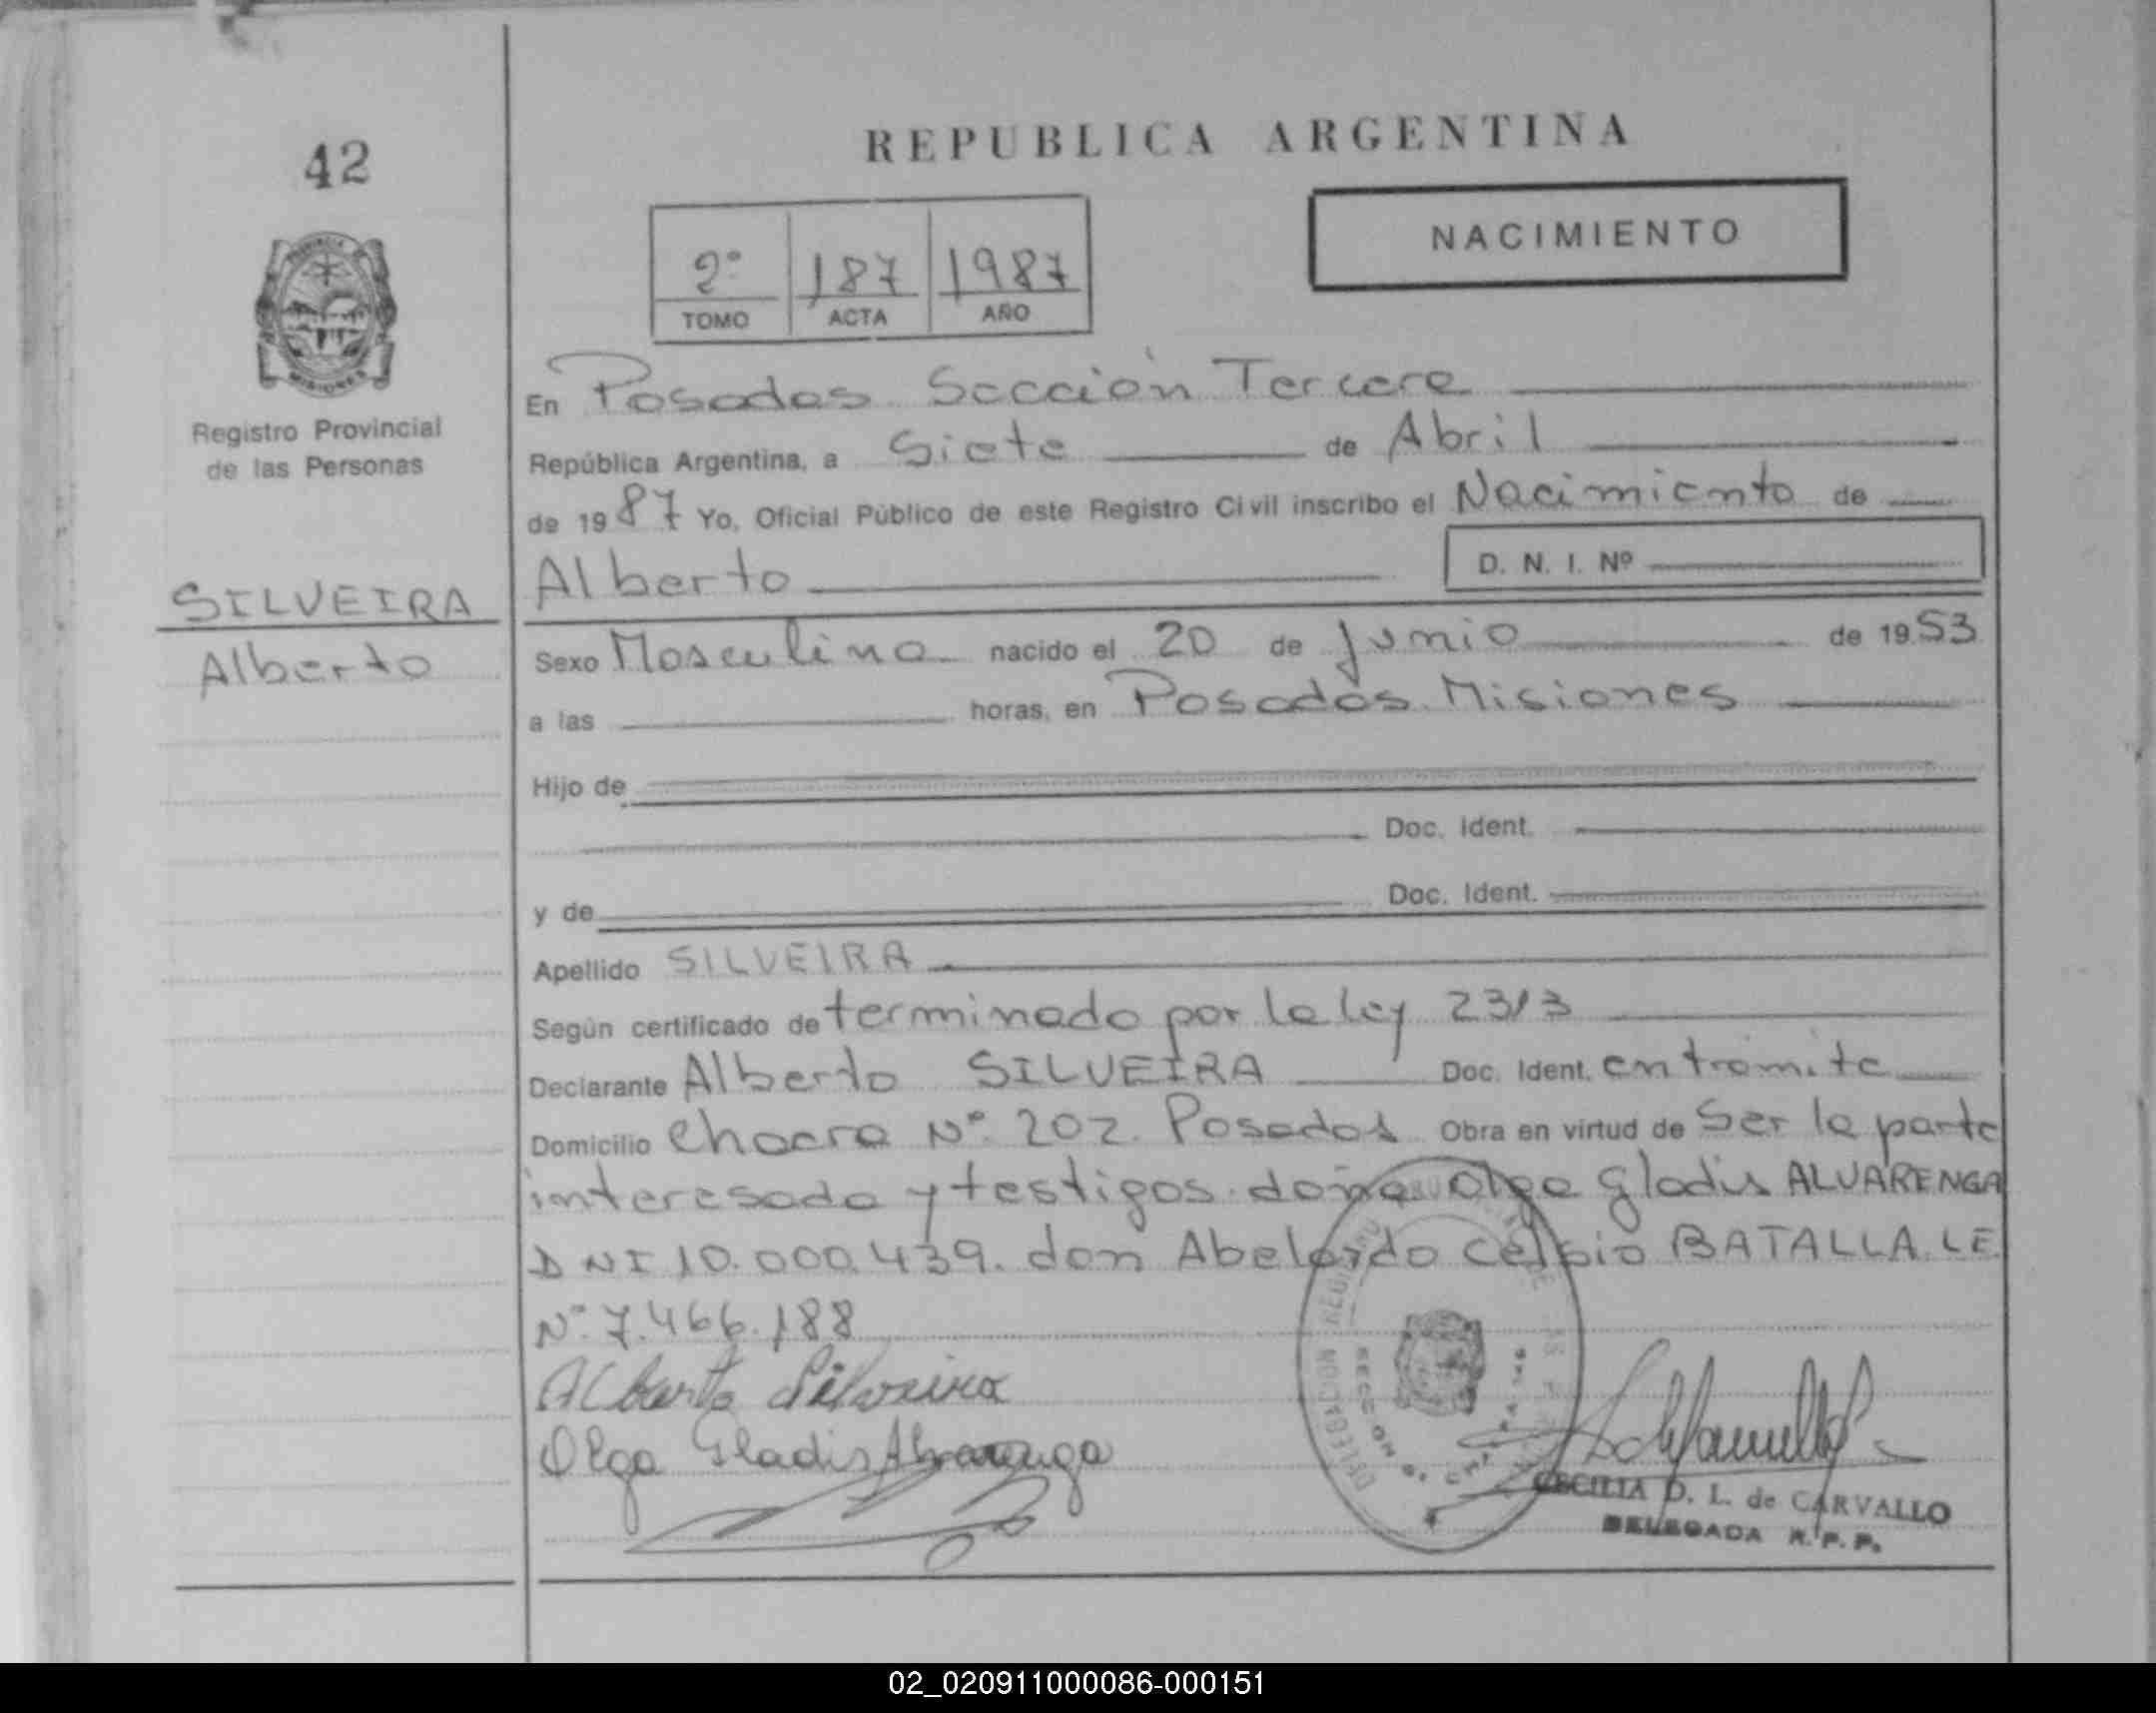 42
REPUBLICA ARGENTINA
NACIMIENTO
2° 187 1987
TOMO ACTA AÑO
Registro Provincial
de las Personas
SILVEIRA
Alberto
En Posadas Sección Tercera
República Argentina, a Siete de Abril
de 1987 Yo, Oficial Público de este Registro Civil inscribo el Nacimiento de
Alberto D. N. I. Nº
Sexo Masculino nacido el 20 de Junio de 1953
a las horas, en Posadas Misiones
Hijo de
Doc. Ident.
y de Doc. Ident.
Apellido SILVEIRA
Según certificado determinado por la ley 2313
Declarante Alberto SILVEIRA Doc. Ident. en tramite
Domicilio Chacra Nº 202. Posadas Obra en virtud de Ser la parte
interesada y testigos doña Olga Gladis ALVARENGA
DNI 10.000.439. don Abelardo BATALLA. LE.
Nº 7.466.188
Alberto Silveira
Olga Gladis Alvarenga
CECILIA D. L. de CARVALLO
DELEGADA R. P. P.
02_020911000086-000151